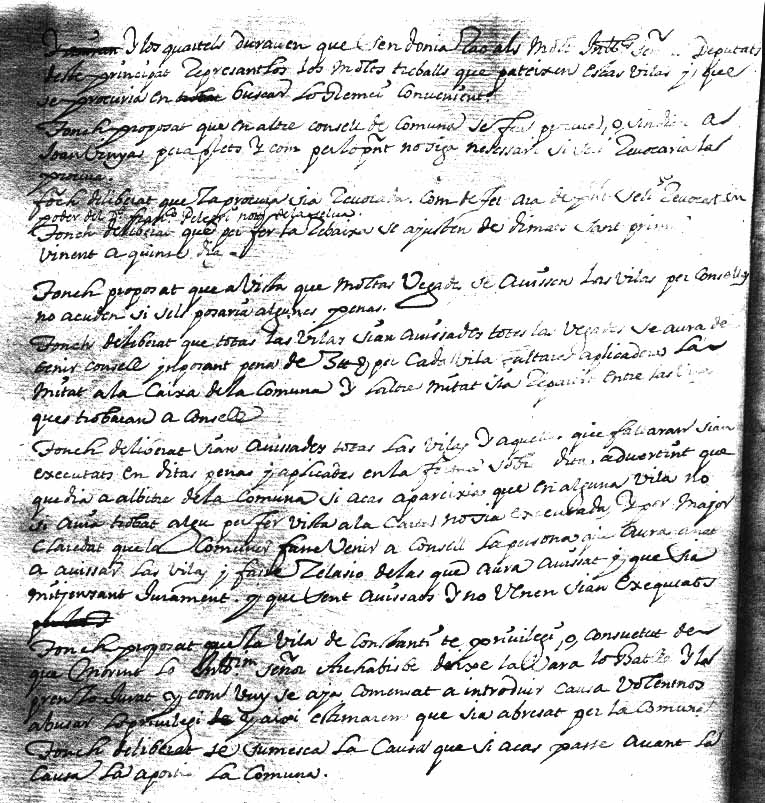 y los quartels duraven que sen donia rao als molt Deputats
deste principat representlos los molts treballs que pateixen estas vilas y que
se procuria en buscar lo remey convenient.
Fonch proposat que en altre consell de Comuna se feu
Joan Vinyas per a plets y com per lo pnt no siga necessari si seli revocaria la
procura
fonch deliberat que la procura sia revocada. Com de fet ara de pnt seli revocat en
poder del Sr. Franco. Pelegri notr. de la selva.
Fonch deliberat que per fer la rebaixa se ajusten de dimars
vinent a quinse dia
Fonch proposat que a vista que moltas vegades se avissen las vilas per consell y
no acuden si sels posaria algunes penas.
Fonch deliberat que totas las vilas sian avissades totes las vegades se aura de
tenir consell y posant pena de 3 ll per cada vila faltare aplicadora la
mitat a la caixa de la Comuna y laltre mitat sia repartit entre las vilas
ques trobaran a consell
Fonch deliberat sian avissades totas las vilas y aquelles que faltaran sian
executats en ditas penas y aplicades en la forma sobre dita, advertint que
quedia a albitre de la Comuna si acas apareixia que en alguna vila no
si avia trobat algu per fer vista a la carta no sia executada, y per major
claredat que la Comuna fasse venir a consell la persona que aura anat
a avissar las vilas y fasse relasio de las que aura avissat y que sia
mitjensant jurament. y que sent avissats y no vinen sian exequtats
Fonch proposat que la vila de Constanti te privilegi o consuetut de
que morint lo señor Archabisbe deixe la vara lo Batlle y la
pren lo Jurat y com vuy se aja comensat a introduir causa volentnos
abusar lo privilegi y axi estimarem que sia abresat per la Comuna
Fonch deliberat se sumesca la causa que si acas passe avant la
causa la aporte la Comuna.